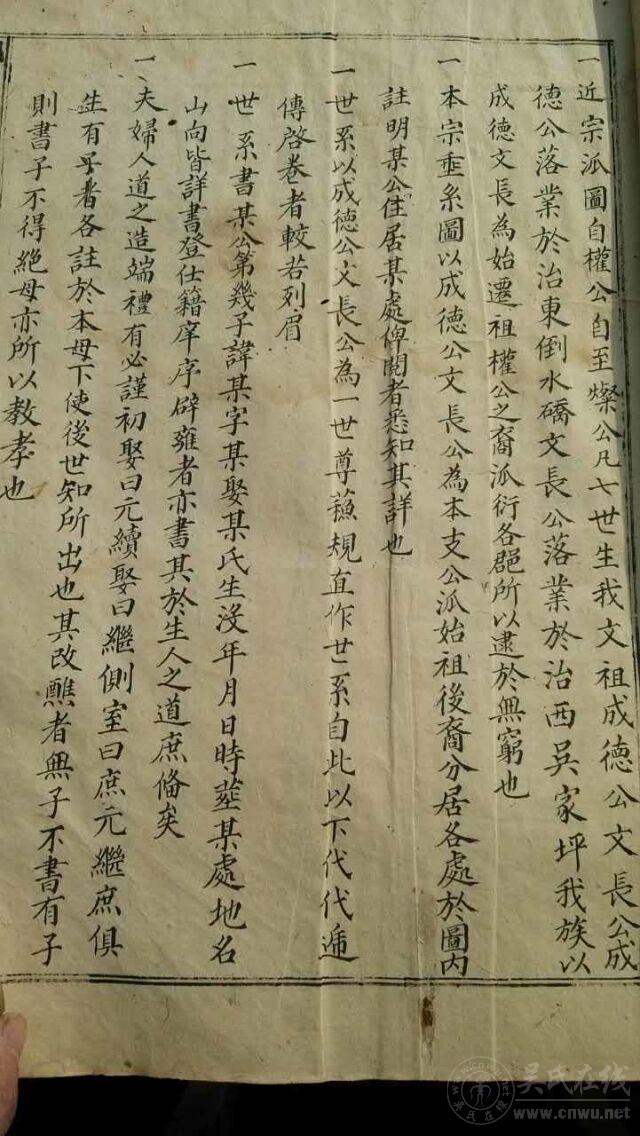 一近宗派圖自權公自至燦公凡七世生我文祖成德公文長公成
德公落業於治東倒水礄文長公落業於治西吳家坪我族以
成德文長為始遷祖權公之裔派衍各郡所以逮於無窮也
一本宗垂糸圖以成德公文長公為本支公派始祖後裔分居各處於圖內
註明某公住居某處俾閱者悉知其詳也
一世系以成德公文長公為一世尊蘓規直作世系自此以下代代遞
傳啓卷者較若列眉
一世系書某公第幾子諱某字某娶某氏生沒年月日時塟某處地名
山向皆詳書登仕籍庠序辟雍者亦書其於生人之道庶俻矣
一夫婦人道之造端禮有必謹初娶曰元續娶曰繼側室曰庶元繼庶俱
生有子者各註於本母下使後世知所出也其改醮者無子不書有子
則書子不得絕母亦所以教孝也
吴氏在线
www.cnwu.net